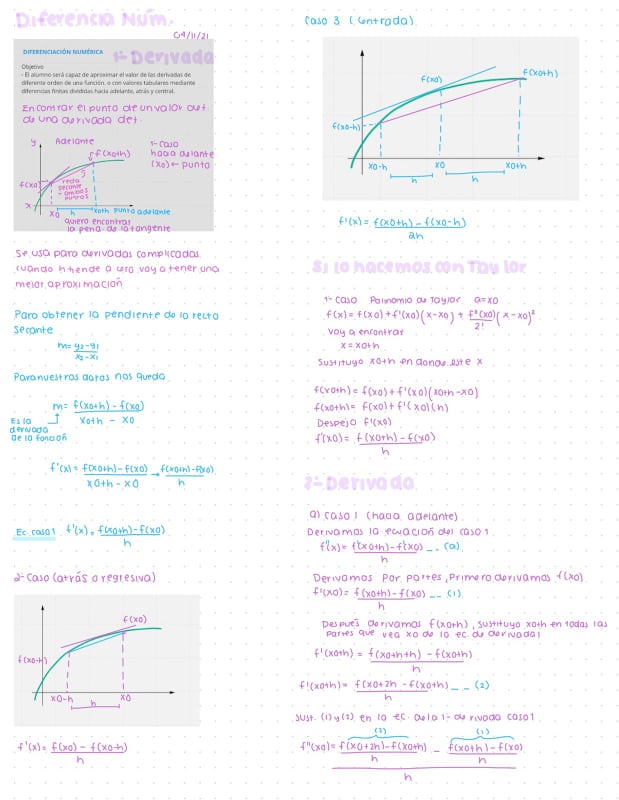 Diferencia Núm.
04/11/21
DIFERENCIACIÓN NUMÉRICA
1- Derivada
Objetivo
- El alumno será capaz de aproximar el valor de las derivadas de
diferente orden de una función, o con valores tabulares mediante
diferencias finitas divididas hacia adelante, atrás y central.
Encontrar el punto de un valor det.
de una derivada det.
y
Adelante
f(x0+h)
f(x0)
recta
secante
- ambos
puntos
x
x0
h
x0+h punto adelante
quiero encontrar
la pend. de la tangente
1- Caso
hacia adelante
(x0) ← punto
Se usa para derivadas complicadas
cuando h tiende a cero voy a tener una
mejor aproximación
Para obtener la pendiente de la recta
secante
m= y2-y1 / x2-x1
Para nuestros datos nos queda.
m= f(x0+h) - f(x0) / x0+h - x0
Es la
derivada
de la función
f'(x)= f(x0+h)-f(x0) / x0+h-x0 → f(x0+h)-f(x0) / h
Ec. caso 1 f'(x)= f(x0+h)-f(x0) / h
2- Caso (atrás o regresiva)
f(x0)
f(x0-h)
x0-h
x0
h
f'(x)= f(x0) - f(x0-h) / h
Caso 3 (Centrada).
f(x0+h)
f(x0)
f(x0-h)
x0-h
x0
x0+h
h
h
f'(x)= f(x0+h) - f(x0-h) / 2h
Si lo hacemos con Taylor
1- Caso Polinomio de Taylor a=x0
f(x)= f(x0)+f'(x0)(x-x0) + f''(x0)/2! (x-x0)²
voy a encontrar
x=x0+h
Sustituyo x0+h en donde este x
f(x0+h)= f(x0)+f'(x0)(x0+h-x0)
f(x0+h)= f(x0)+f'(x0)(h)
Despejo f'(x0)
f'(x0)= f(x0+h)-f(x0) / h
2- Derivada
a) Caso 1 (hacia adelante)
Derivamos la ecuación del caso 1
f''(x)= f'(x0+h)-f'(x0) / h -- (a)
Derivamos por partes, primero derivamos f(x0)
f'(x0)= f(x0+h)-f(x0) / h -- (1)
Después derivamos f(x0+h), sustituyo x0+h en todas las
partes que vea x0 de la ec. de derivada 1
f'(x0+h)= f(x0+h+h) - f(x0+h) / h
f'(x0+h)= f(x0+2h - f(x0+h) / h -- (2)
Sust. (1) y (2) en la ec. de la 1- derivada caso 1.
(2) (1)
f''(x0)= f(x0+2h)-f(x0+h) / h - f(x0+h)-f(x0) / h
h